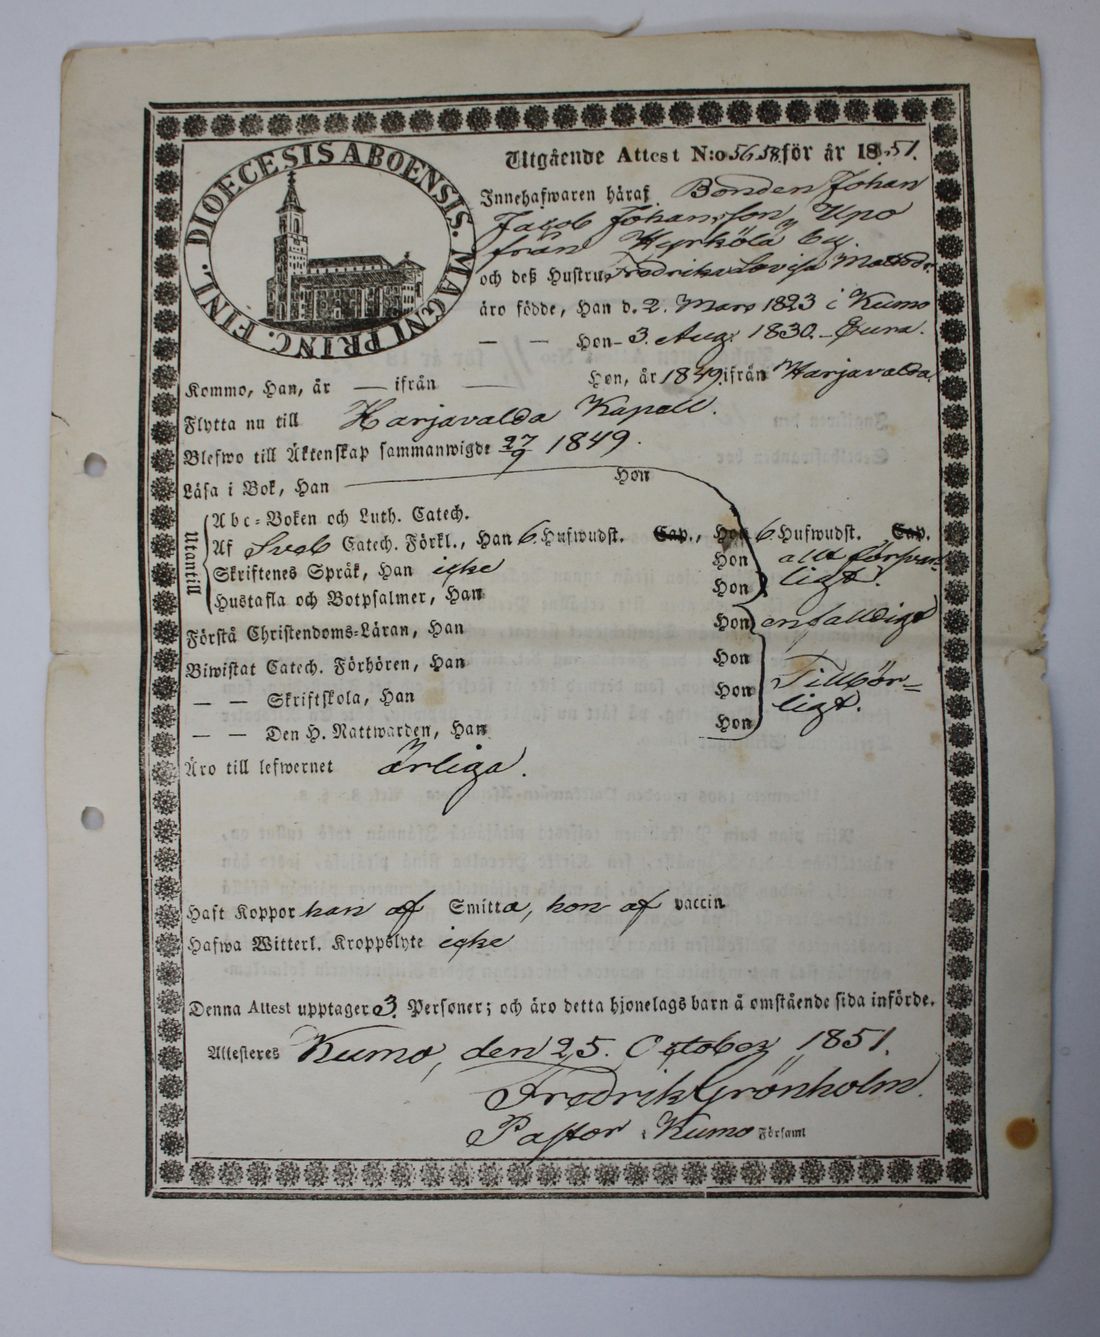 DIOECESIS ABOENSIS. MAGNI PRINC. FINL.
Utgående Attest N:o 56 58. för år 1851.
Innehafwaren häraf Bonden Johan
Jacob Johansson Upo
från Kyrkölä by.
och deß Hustru Fredrika Lovisa
äro födde, Han d. 2. Mars 1823 i Kumo
— — Hon — 3. Aug. 1830. — Eura.
Kommo, Han, år — ifrån — Hon, år 1849. ifrån Harjavalda.
Flytta nu till Harjavalda Kapell.
Blefwo till Äktenskap sammanwigde 27/9 1849.
Läsa i Bok, Han — Hon
Utantill
Abc-Boken och Luth. Catech.
Af Sveb Catech. Förkl., Han 6. Hufwudst. Cap., Hon 6. Hufwudst. Cap.
Skriftenes Språk, Han icke Hon allt
Hustafla och Botpsalmer, Han Hon ligt.
Förstå Christendoms-Läran, Han Hon enfalldigt
Biwistat Catech. Förhören, Han Hon
— — Skriftskola, Han Hon Tillbör-
— — Den H. Nattwarden, Han Hon ligt.
Äro till lefwernet ärliga.
Haft Koppor han af Smitta, hon af vaccin
Hafwa Witterl. Kroppslyte icke
Denna Attest upptager 3. Personer; och äro detta hjonelags barn å omstående sida införde.
Attesteres Kumo, den 25. October 1851.
Fredrik Grönholm.
Pastor i Kumo Församl